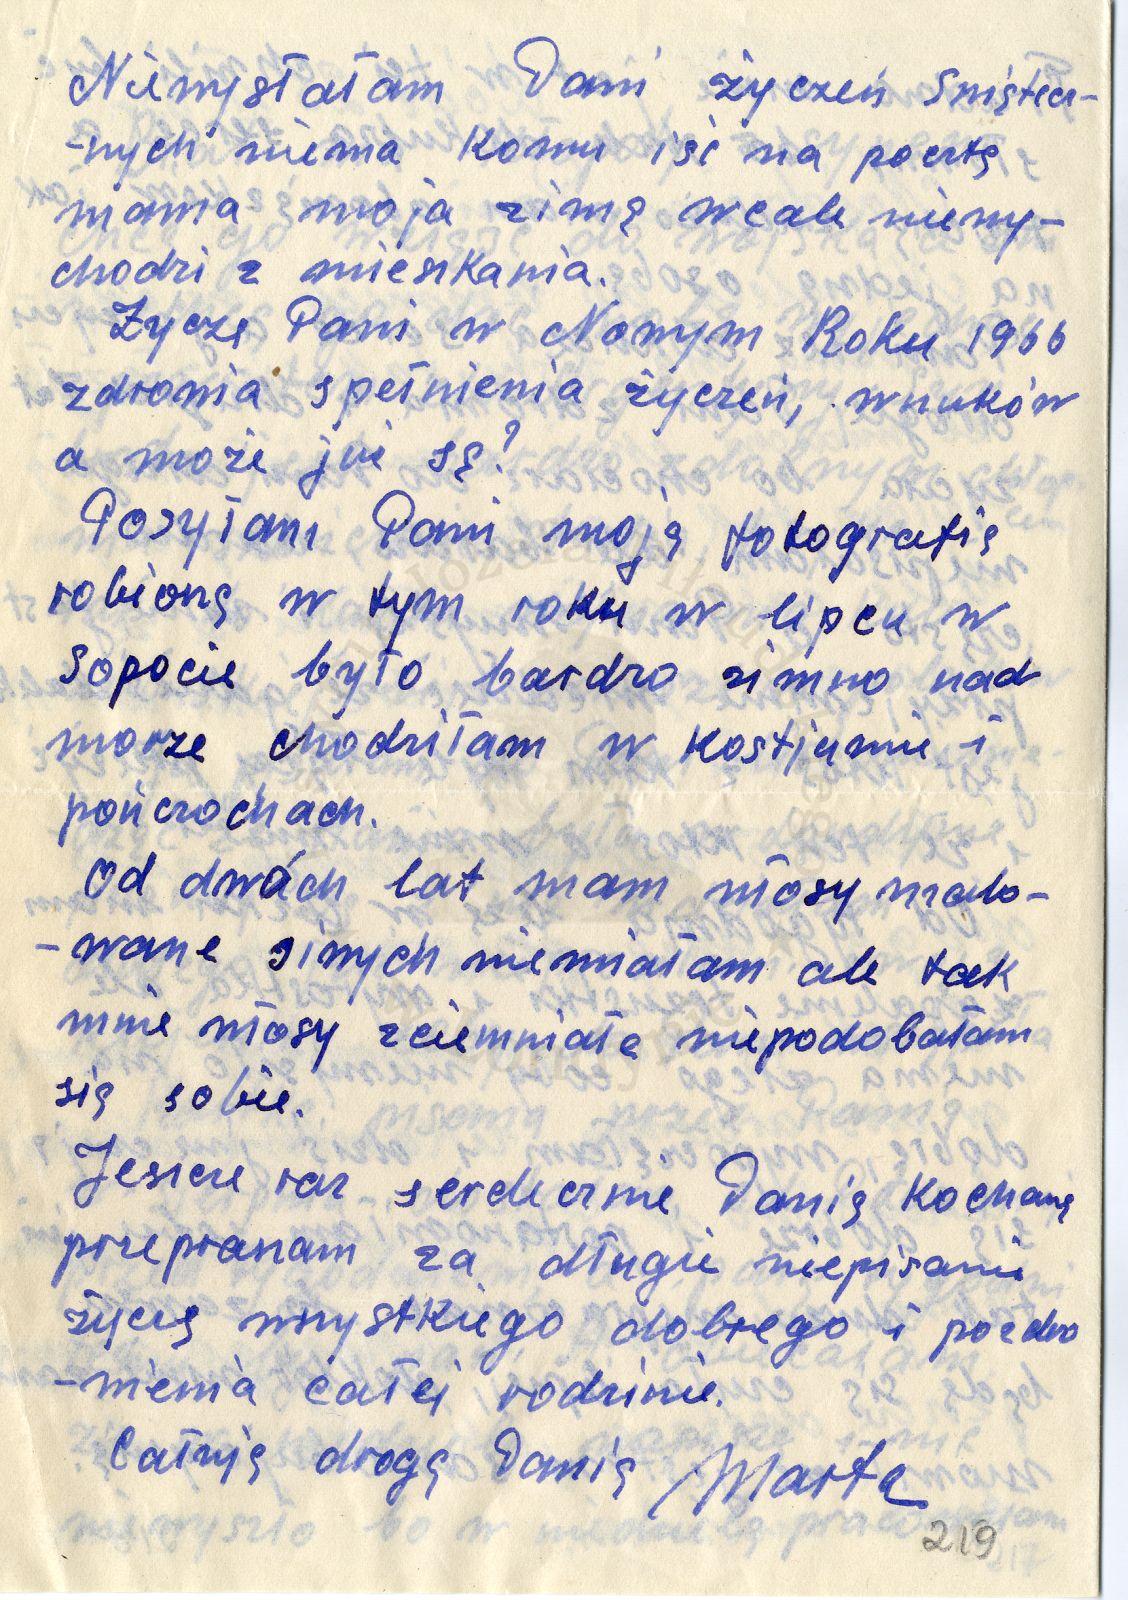 Niewysłałam Pani życzeń Swiątecz-
-nych niema komu iść na pocztę
mama moja zimą wcale niewy-
chodzi z mieszkania.
Życzę Pani w Nowym Roku 1966
zdrowia spełnienia życzeń, wnuków
a może już są?
Posyłam Pani moją fotografię
robioną w tym roku w lipcu w
Sopocie było bardzo zimno nad
morze chodziłam w kostjumie i
pończochach.
Od dwóch lat mam włosy malo-
-wane siwych niemiałam ale tak
mnie włosy zciemniały niepodobałam
się sobie.
Jeszcze raz serdecznie Panią kochaną
przepraszam za długie niepisanie
życzę wszystkiego dobrego i pozdro
-wienia całej rodzinie.
Całuję drogą Panią Marta
219